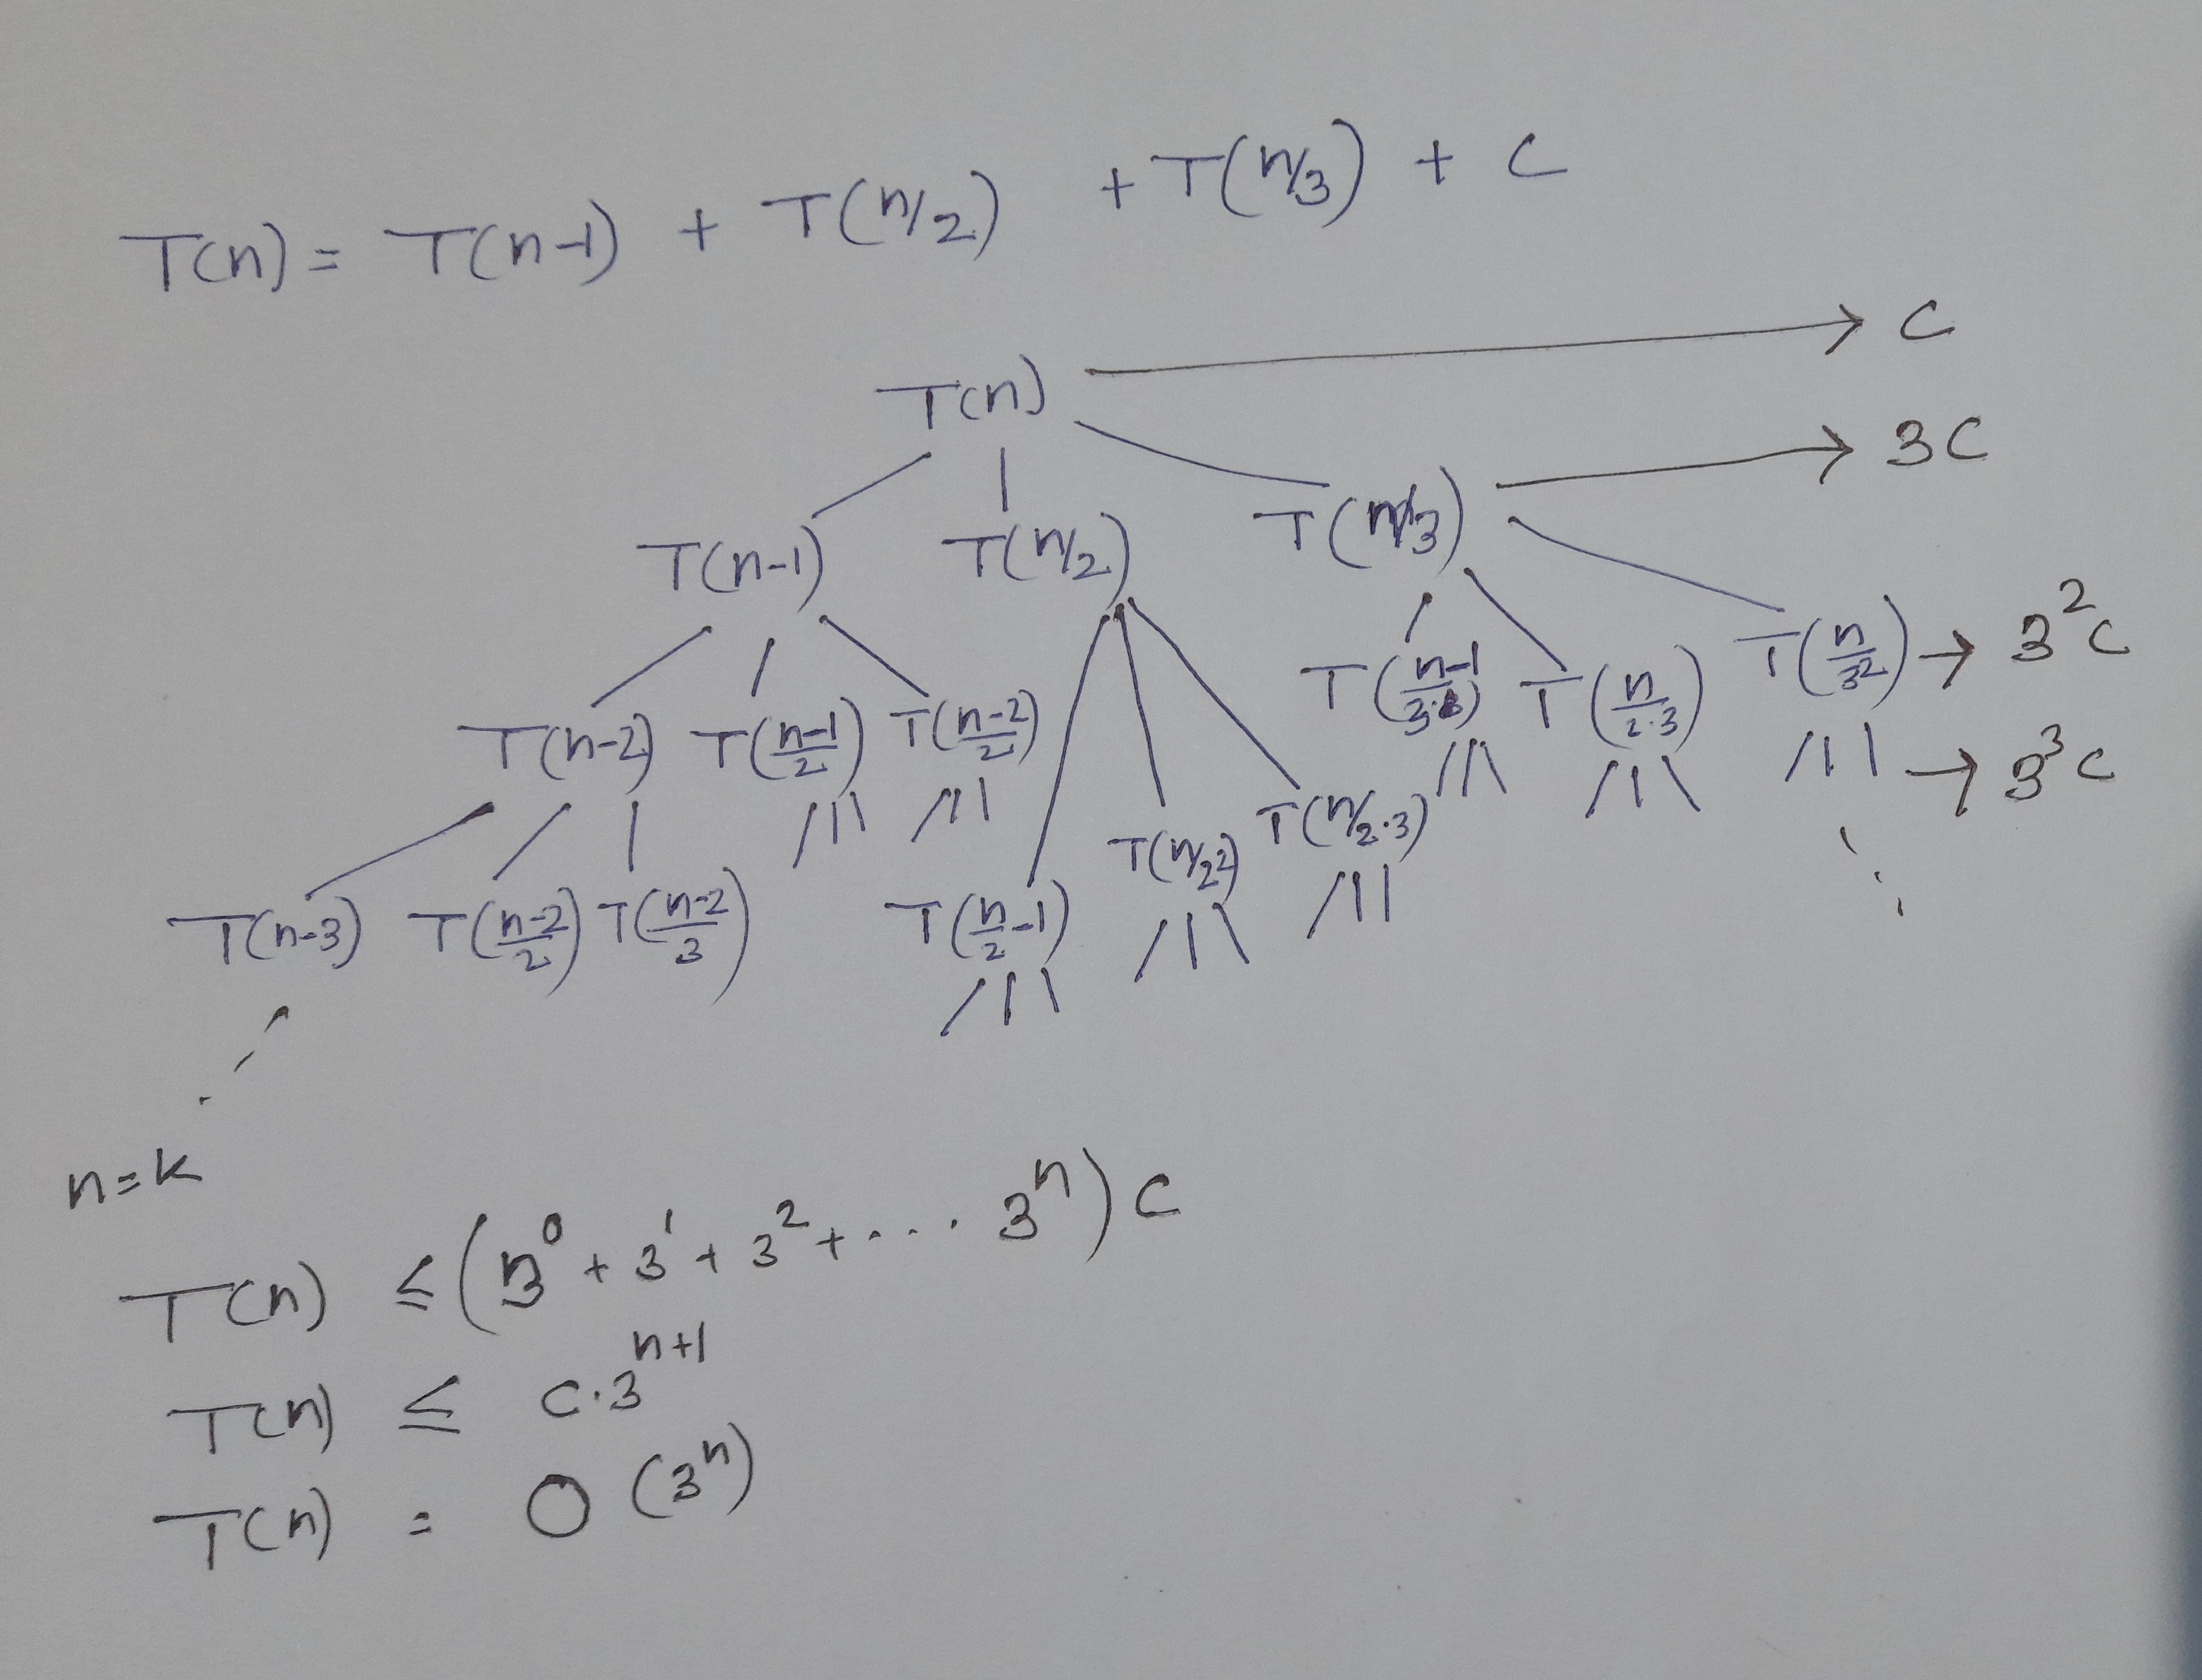 T(n) = T(n-1) + T(n/2) + T(n/3) + C
T(n) → C
T(n-1) T(n/2) T(n/3) → 3C
T(n-2) T((n-1)/2) T((n-2)/2) T(n/2 -1) T(n/2²) T(n/2·3) T(n/2·3) T(n/3²) → 3²C
T(n-3) T((n-2)/2) T((n-2)/3) → 3³C
n=k
T(n) ≤ (3⁰ + 3¹ + 3² + .... 3ⁿ) C
T(n) ≤ C·3ⁿ⁺¹
T(n) = O(3ⁿ)